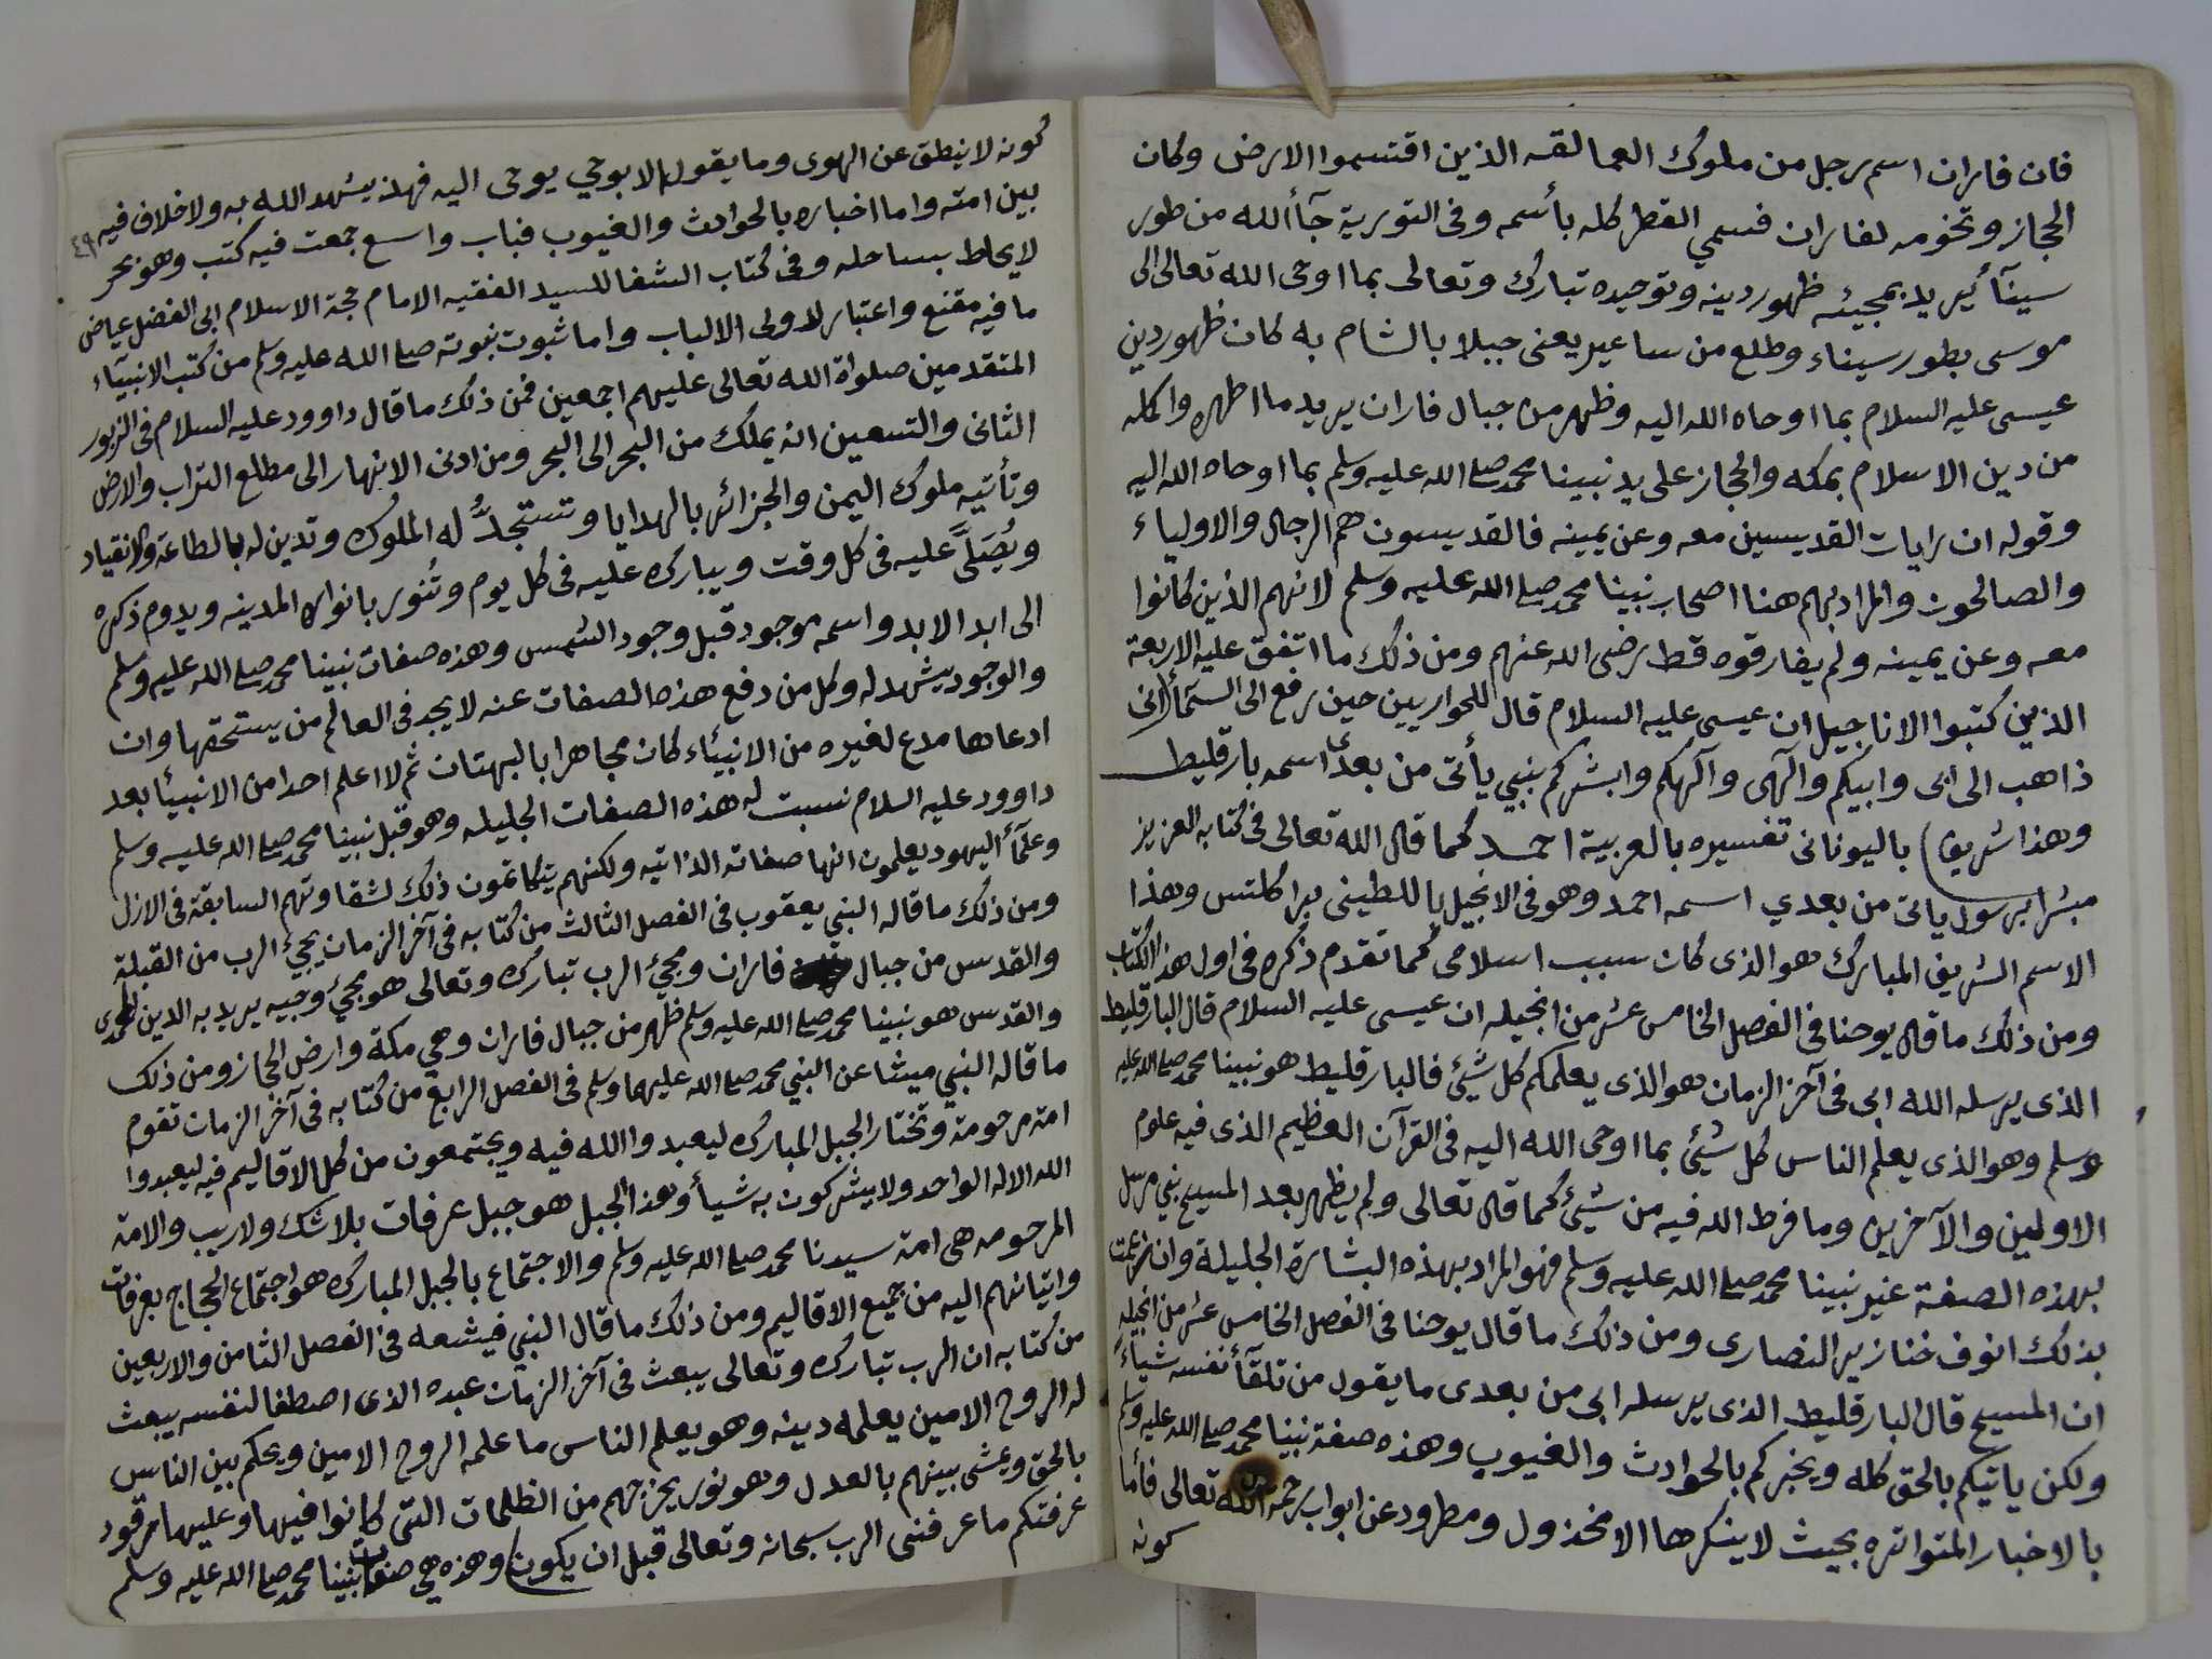 فان فاران اسم رجل من ملوك العمالقه الذين اقتسموا الارض وكان
الحجاز وتخومه لفاران فسمي القطر كله بأسمه وفى التورية جآأ الله من طور
سينآئ يريد بمجيئه ظهور دينه وتوحيده تبارك وتعالى بما اوحى الله تعالى الى
موسى بطور سيناء وطلع من ساعير يعنى جبلا بالشام به كان ظهور دين
عيسى عليه السلام بما اوحاه الله اليه وظهر من جبال فاران يريد ما اظهره واكمله
من دين الاسلام بمكه والحجاز على يد نبينا محمد صلى الله عليه وسلم بما اوحاه الله اليه
وقوله ان رايات القديسين معه وعن يمينه فالقديسون هم الرجال والاولياء
والصالحون والمراد بهم هنا اصحاب نبينا محمد صلى الله عليه وسلم لانهم الذين كانوا
معه وعن يمينه ولم يفارقوه قط رضى الله عنهم ومن ذلك ما اتفق عليه الاربعة
الذين كتبوا الاناجيل ان عيسى عليه السلام قال للحواريين حين رفع الى السمآأ انى
ذاهب الى ابى وابيكم وآلهى وآلهكم وابشركم بنبي يأتى من بعدى اسمه بارقليط
وهذا شريف) باليونانى تفسيره بالعربية احمد كما قال الله تعالى فى كتابه العزيز
مبشرا برسول ياتى من بعدي اسمه احمد وهو فى الانجيل باللطينى براكلتس وهذا
الاسم الشريف المبارك هو الذى كان سبب اسلامى كما تقدم ذكره فى اول هذا الكتاب
ومن ذلك ما قال يوحنا فى الفصل الخامس عشر من انجيله ان عيسى عليه السلام قال البارقليط
الذى يرسله الله ابى فى آخر الزمان هو الذى يعلمكم كل شيئ فالبارقليط هو نبينا محمد صلى الله عليه
وسلم وهو الذى يعلم الناس كل شيئ بما اوحى الله اليه فى القرآن العظيم الذى فيه علوم
الاولين والآخرين وما فرط الله فيه من شيئ كما قال تعالى ولم يظهر بعد المسيح نبي مرسل
بهذه الصفة غير نبينا محمد صلى الله عليه وسلم فهو المراد بهذه البشارة الجليلة وان زعمت
بذلك انوف خنازير النصارى ومن ذلك ما قال يوحنا فى الفصل الخامس عشر من انجيله
ان المسيح قال البارقليط الذى يرسله ابى من بعدى ما يقول من تلقآأ نفسه شياءً
ولكن ياتيكم بالحق كله ويخبركم بالحوادث والغيوب وهذه صفة نبينا محمد صلى الله عليه وسلم
بالاخبار المتواتره بحيث لا ينكرها الا مخذول ومطرود عن ابواب رحمة الله تعالى فأما
كونه
كونه لا ينطق عن الهوى وما يقول الا بوحي يوحى اليه فهذ يشهد الله به ولا خلاف فيه ٤٩
بين امته واما اخباره بالحوادث والغيوب فباب واسع جمعت فيه كتب وهو بحر
لا يحاط بساحله وفى كتاب الشفا للسيد الفقيه الامام حجة الاسلام ابى الفضل عياض
ما فيه مقنع واعتبار لاولى الالباب واما ثبوت نبوته صلى الله عليه وسلم من كتب الانبيآء
المتقدمين صلواة الله تعالى عليهم اجمعين فمن ذلك ما قال داوود عليه السلام فى الزبور
الثانى والتسعين انه يملك من البحر الى البحر ومن ادنى الانهار الى مطلع التراب والارض
وتأتيه ملوك اليمن والجزائر بالهدايا وتستجدُّ له الملوك وتدين له بالطاعة والانقياد
ويُصَلَّى عليه فى كل وقت ويبارك عليه فى كل يوم وتُنور بانواره المدينه ويدوم ذكره
الى ابد الابد واسمه موجود قبل وجود الشمس وهذه صفات نبينا محمد صلى الله عليه وسلم
والوجود يشهد له وكل من دفع هذه الصفات عنه لا يجد فى العالم من يستحقها وان
ادعاها مدع لغيره من الانبيئاء كان مجاهرا بالبهتان ثم لا اعلم احدا من الانبيئا بعد
داوود عليه السلام نسبت له هذه الصفات الجليله وهو قبل نبينا محمد صلى الله عليه وسلم
وعلمآأ اليهود يعلمون انها صفاته الذاتيه ولكنهم يتكاتمون ذلك لشقاوتهم السابقة فى الازل
ومن ذلك ما قاله النبي يعقوب فى الفصل الثالث من كتابه فى آخر الزمان يجيئ الرب من القبلة
والقدس من جبال فاران ومجيئ الرب تبارك وتعالى هو مجيئ وحيه يريد به الدين المحمدى
والقدس هو نبينا محمد صلى الله عليه وسلم ظهر من جبال فاران وهي مكة وارض الحجاز ومن ذلك
ما قاله النبي ميشا عن النبي محمد صلى الله عليهما وسلم فى الفصل الرابع من كتابه فى آخر الزمان تقوم
امة مرحومة وتختار الجبل المبارك ليعبدوا الله فيه ويجتمعون من كل الاقاليم فيه ليعبدوا
الله الاله الواحد ولا يشركون به شيأ وهذا الجبل هو جبل عرفات بلا شك ولا ريب والامة
المرحومه هى امة سيدنا محمد صلى الله عليه وسلم والاجتماع بالجبل المبارك هو اجتماع الحجاج بعرفات
واتيانهم اليه من جميع الاقاليم ومن ذلك ما قال النبي فيشعه فى الفصل الثامن والاربعين
من كتابه ان الرب تبارك وتعالى يبعث فى آخر الزمان عبده الذى اصطفا لنفسه يبعث
له الروح الامين يعلمه دينه وهو يعلم الناس ما علمه الروح الامين ويحكم بين الناس
بالحق ويمشى بينهم بالعدل وهو نور يخرجهم من الظلمات التى كانوا فيها وعليها مرقود
عرفتكم ما عرفنى الرب سبحانه وتعالى قبل ان يكون) وهذه هي صفات نبينا محمد صلى الله عليه وسلم